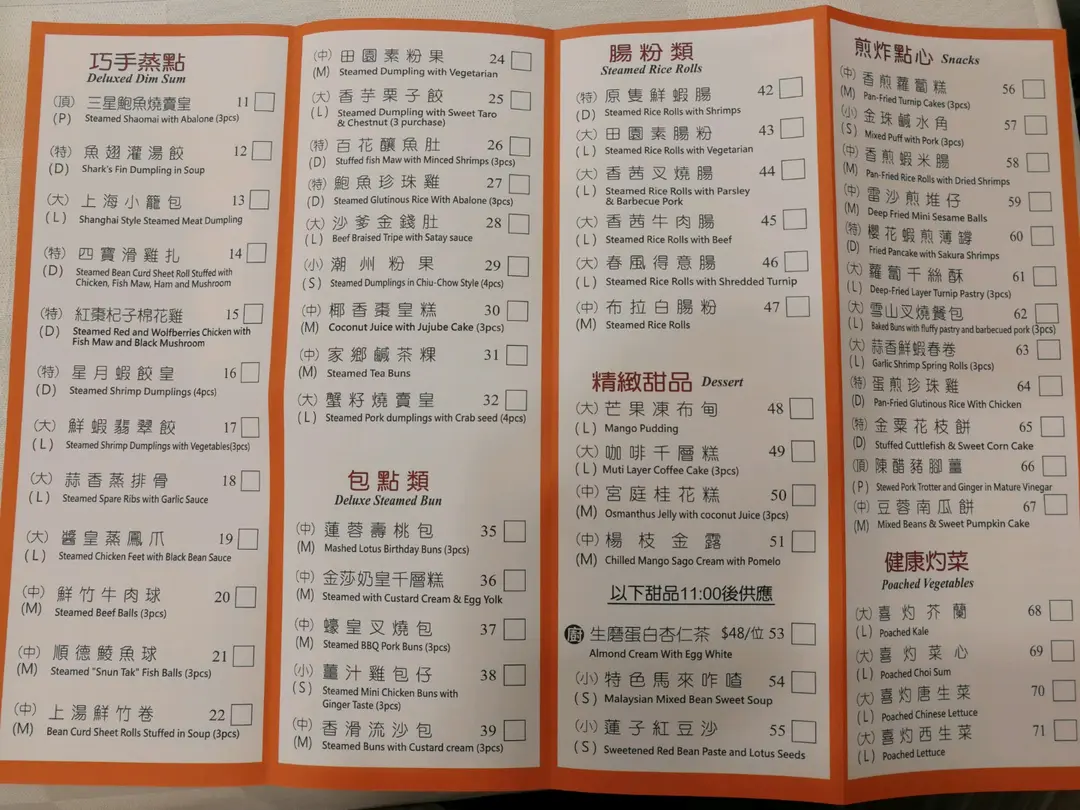 巧手蒸點
Deluxed Dim Sum
(頂) 三星鮑魚燒賣皇 11
(P) Steamed Shaomai with Abalone (3pcs)
(特) 魚翅灌湯餃 12
(D) Shark's Fin Dumpling in Soup
(大) 上海小籠包 13
(L) Shanghai Style Steamed Meat Dumpling
(特) 四寶滑雞扎 14
(D) Steamed Bean Curd Sheet Roll Stuffed with
Chicken, Fish Maw, Ham and Mushroom
(特) 紅棗杞子棉花雞 15
(D) Steamed Red and Wolfberries Chicken with
Fish Maw and Black Mushroom
(特) 星月蝦餃皇 16
(D) Steamed Shrimp Dumplings (4pcs)
(大) 鮮蝦翡翠餃 17
(L) Steamed Shrimp Dumplings with Vegetables(3pcs)
(大) 蒜香蒸排骨 18
(L) Steamed Spare Ribs with Garlic Sauce
(大) 醬皇蒸鳳爪 19
(L) Steamed Chicken Feet with Black Bean Sauce
(中) 鮮竹牛肉球 20
(M) Steamed Beef Balls (3pcs)
(中) 順德鯪魚球 21
(M) Steamed "Snun Tak" Fish Balls (3pcs)
(中) 上湯鮮竹卷 22
(M) Bean Curd Sheet Rolls Stuffed in Soup (3pcs)
(中) 田園素粉果 24
(M) Steamed Dumpling with Vegetarian
(大) 香芋栗子餃 25
(L) Steamed Dumpling with Sweet Taro
& Chestnut (3 purchase)
(特) 百花釀魚肚 26
(D) Stuffed fish Maw with Minced Shrimps (3pcs)
(特) 鮑魚珍珠雞 27
(D) Steamed Glutinous Rice With Abalone (3pcs)
(大) 沙爹金錢肚 28
(L) Beef Braised Tripe with Satay sauce
(小) 潮州粉果 29
(S) Steamed Dumplings in Chiu-Chow Style (4pcs)
(中) 椰香棗皇糕 30
(M) Coconut Juice with Jujube Cake (3pcs)
(中) 家鄉鹹茶粿 31
(M) Steamed Tea Buns
(大) 蟹籽燒賣皇 32
(L) Steamed Pork dumplings with Crab seed (4pcs)
包點類
Deluxe Steamed Bun
(中) 蓮蓉壽桃包 35
(M) Mashed Lotus Birthday Buns (3pcs)
(中) 金莎奶皇千層糕 36
(M) Steamed with Custard Cream & Egg Yolk
(中) 蠔皇叉燒包 37
(M) Steamed BBQ Pork Buns (3pcs)
(小) 薑汁雞包仔 38
(S) Steamed Mini Chicken Buns with
Ginger Taste (3pcs)
(中) 香滑流沙包 39
(M) Steamed Buns with Custard cream (3pcs)
腸粉類
Steamed Rice Rolls
(特) 原隻鮮蝦腸 42
(D) Steamed Rice Rolls with Shrimps
(大) 田園素腸粉 43
(L) Steamed Rice Rolls with Vegetarian
(大) 香茜叉燒腸 44
(L) Steamed Rice Rolls with Parsley
& Barbecue Pork
(大) 香茜牛肉腸 45
(L) Steamed Rice Rolls with Beef
(大) 春風得意腸 46
(L) Steamed Rice Rolls with Shredded Turnip
(中) 布拉白腸粉 47
(M) Steamed Rice Rolls
精緻甜品 Dessert
(大) 芒果凍布甸 48
(L) Mango Pudding
(大) 咖啡千層糕 49
(L) Muti Layer Coffee Cake (3pcs)
(中) 宮庭桂花糕 50
(M) Osmanthus Jelly with coconut Juice (3pcs)
(中) 楊枝金露 51
(M) Chilled Mango Sago Cream with Pomelo
以下甜品11:00後供應
廚 生磨蛋白杏仁茶 $48/位 53
Almond Cream With Egg White
(小) 特色馬來咋喳 54
(S) Malaysian Mixed Bean Sweet Soup
(小) 蓮子紅豆沙 55
(S) Sweetened Red Bean Paste and Lotus Seeds
煎炸點心 Snacks
(中) 香煎蘿蔔糕 56
(M) Pan-Fried Turnip Cakes (3pcs)
(小) 金珠鹹水角 57
(S) Mixed Puff with Pork (3pcs)
(中) 香煎蝦米腸 58
(M) Pan-Fried Rice Rolls with Dried Shrimps
(中) 雷沙煎堆仔 59
(M) Deep Fried Mini Sesame Balls
(特) 櫻花蝦煎薄罉 60
(D) Fried Pancake with Sakura Shrimps
(大) 蘿蔔千絲酥 61
(L) Deep-Fried Layer Turnip Pastry (3pcs)
(大) 雪山叉燒餐包 62
(L) Baked Buns with fluffy pastry and barbecued pork (3pcs)
(大) 蒜香鮮蝦春卷 63
(L) Garlic Shrimp Spring Rolls (3pcs)
(特) 蛋煎珍珠雞 64
(D) Pan-Fried Glutinous Rice With Chicken
(特) 金粟花枝餅 65
(D) Stuffed Cuttlefish & Sweet Corn Cake
(頂) 陳醋豬腳薑 66
(P) Stewed Pork Trotter and Ginger in Mature Vinegar
(中) 豆蓉南瓜餅 67
(M) Mixed Beans & Sweet Pumpkin Cake
健康灼菜
Poached Vegetables
(大) 喜灼芥蘭 68
(L) Poached Kale
(大) 喜灼菜心 69
(L) Poached Choi Sum
(大) 喜灼唐生菜 70
(L) Poached Chinese Lettuce
(大) 喜灼西生菜 71
(L) Poached Lettuce